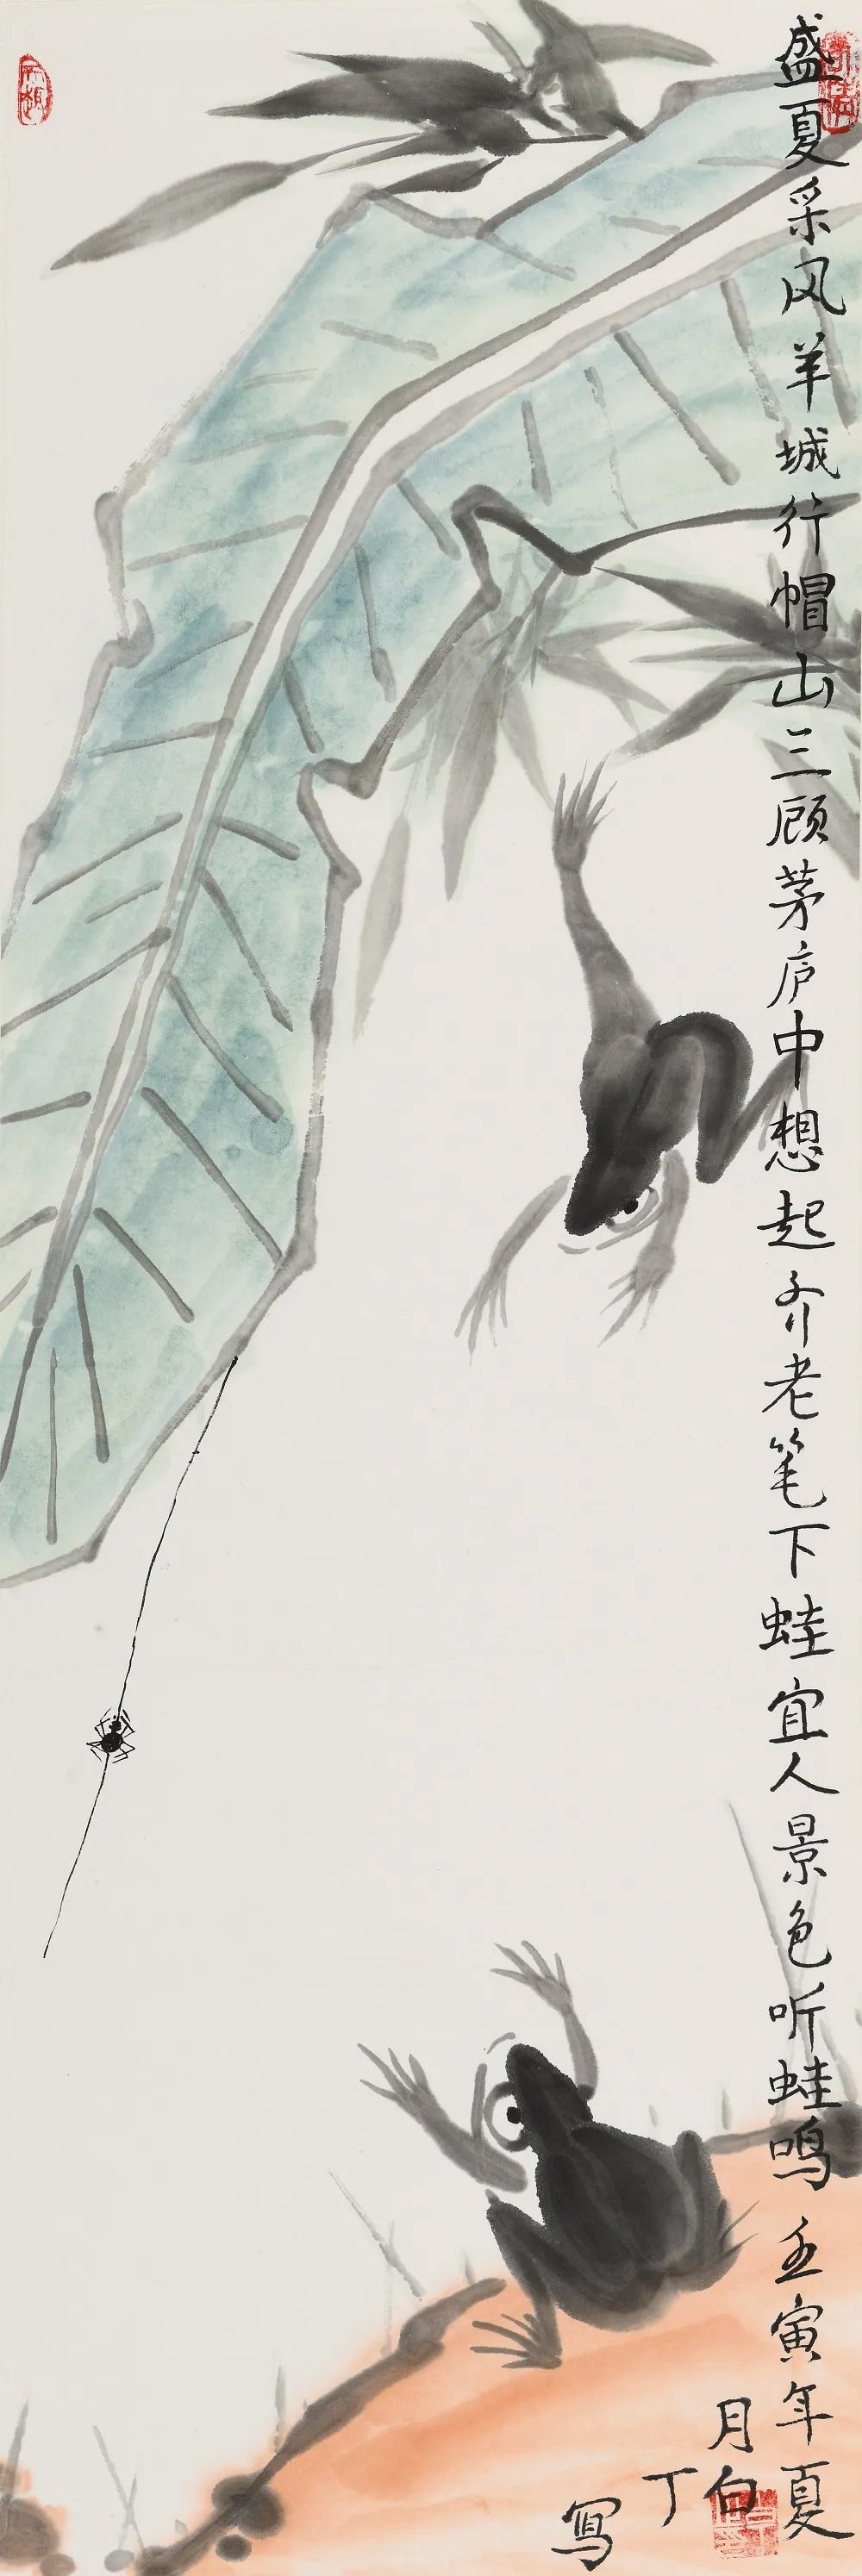 盛夏采风羊城行帽山三顾茅庐中想起齐老笔下蛙宜人景色听蛙鸣 壬寅年夏
月白
丁
写